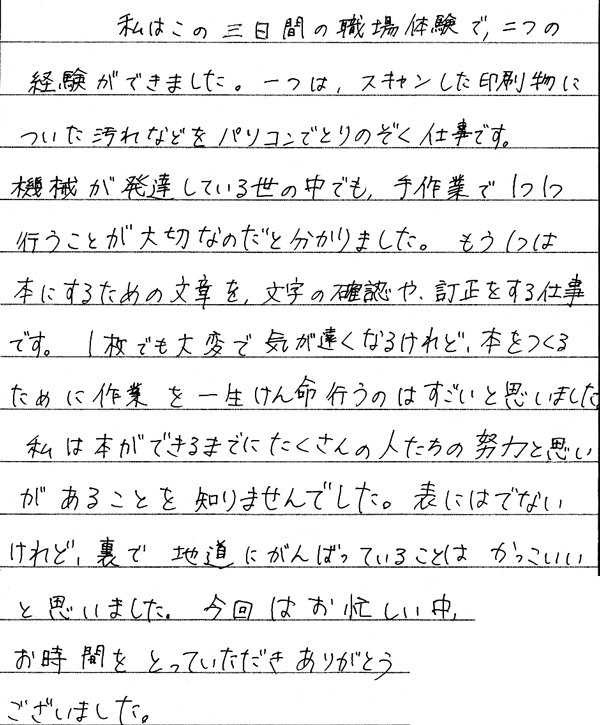 私はこの三日間の職場体験で,二つの
経験ができました。一つは,スキャンした印刷物に
ついた汚れなどをパソコンでとりのぞく仕事です。
機械が発達している世の中でも,手作業で1つ1つ
行うことが大切なのだと分かりました。もう1つは
本にするための文章を,文字の確認や、訂正をする仕事
です。1枚でも大変で気が遠くなるけれど,本をつくる
ために作業を一生けん命行うのはすごいと思いました
私は本ができるまでにたくさんの人たちの努力と思い
があることを知りませんでした。表にはでない
けれど,裏で地道にがんばっていることはかっこいい
と思いました。今回はお忙しい中,
お時間をとっていただきありがとう
ございました。